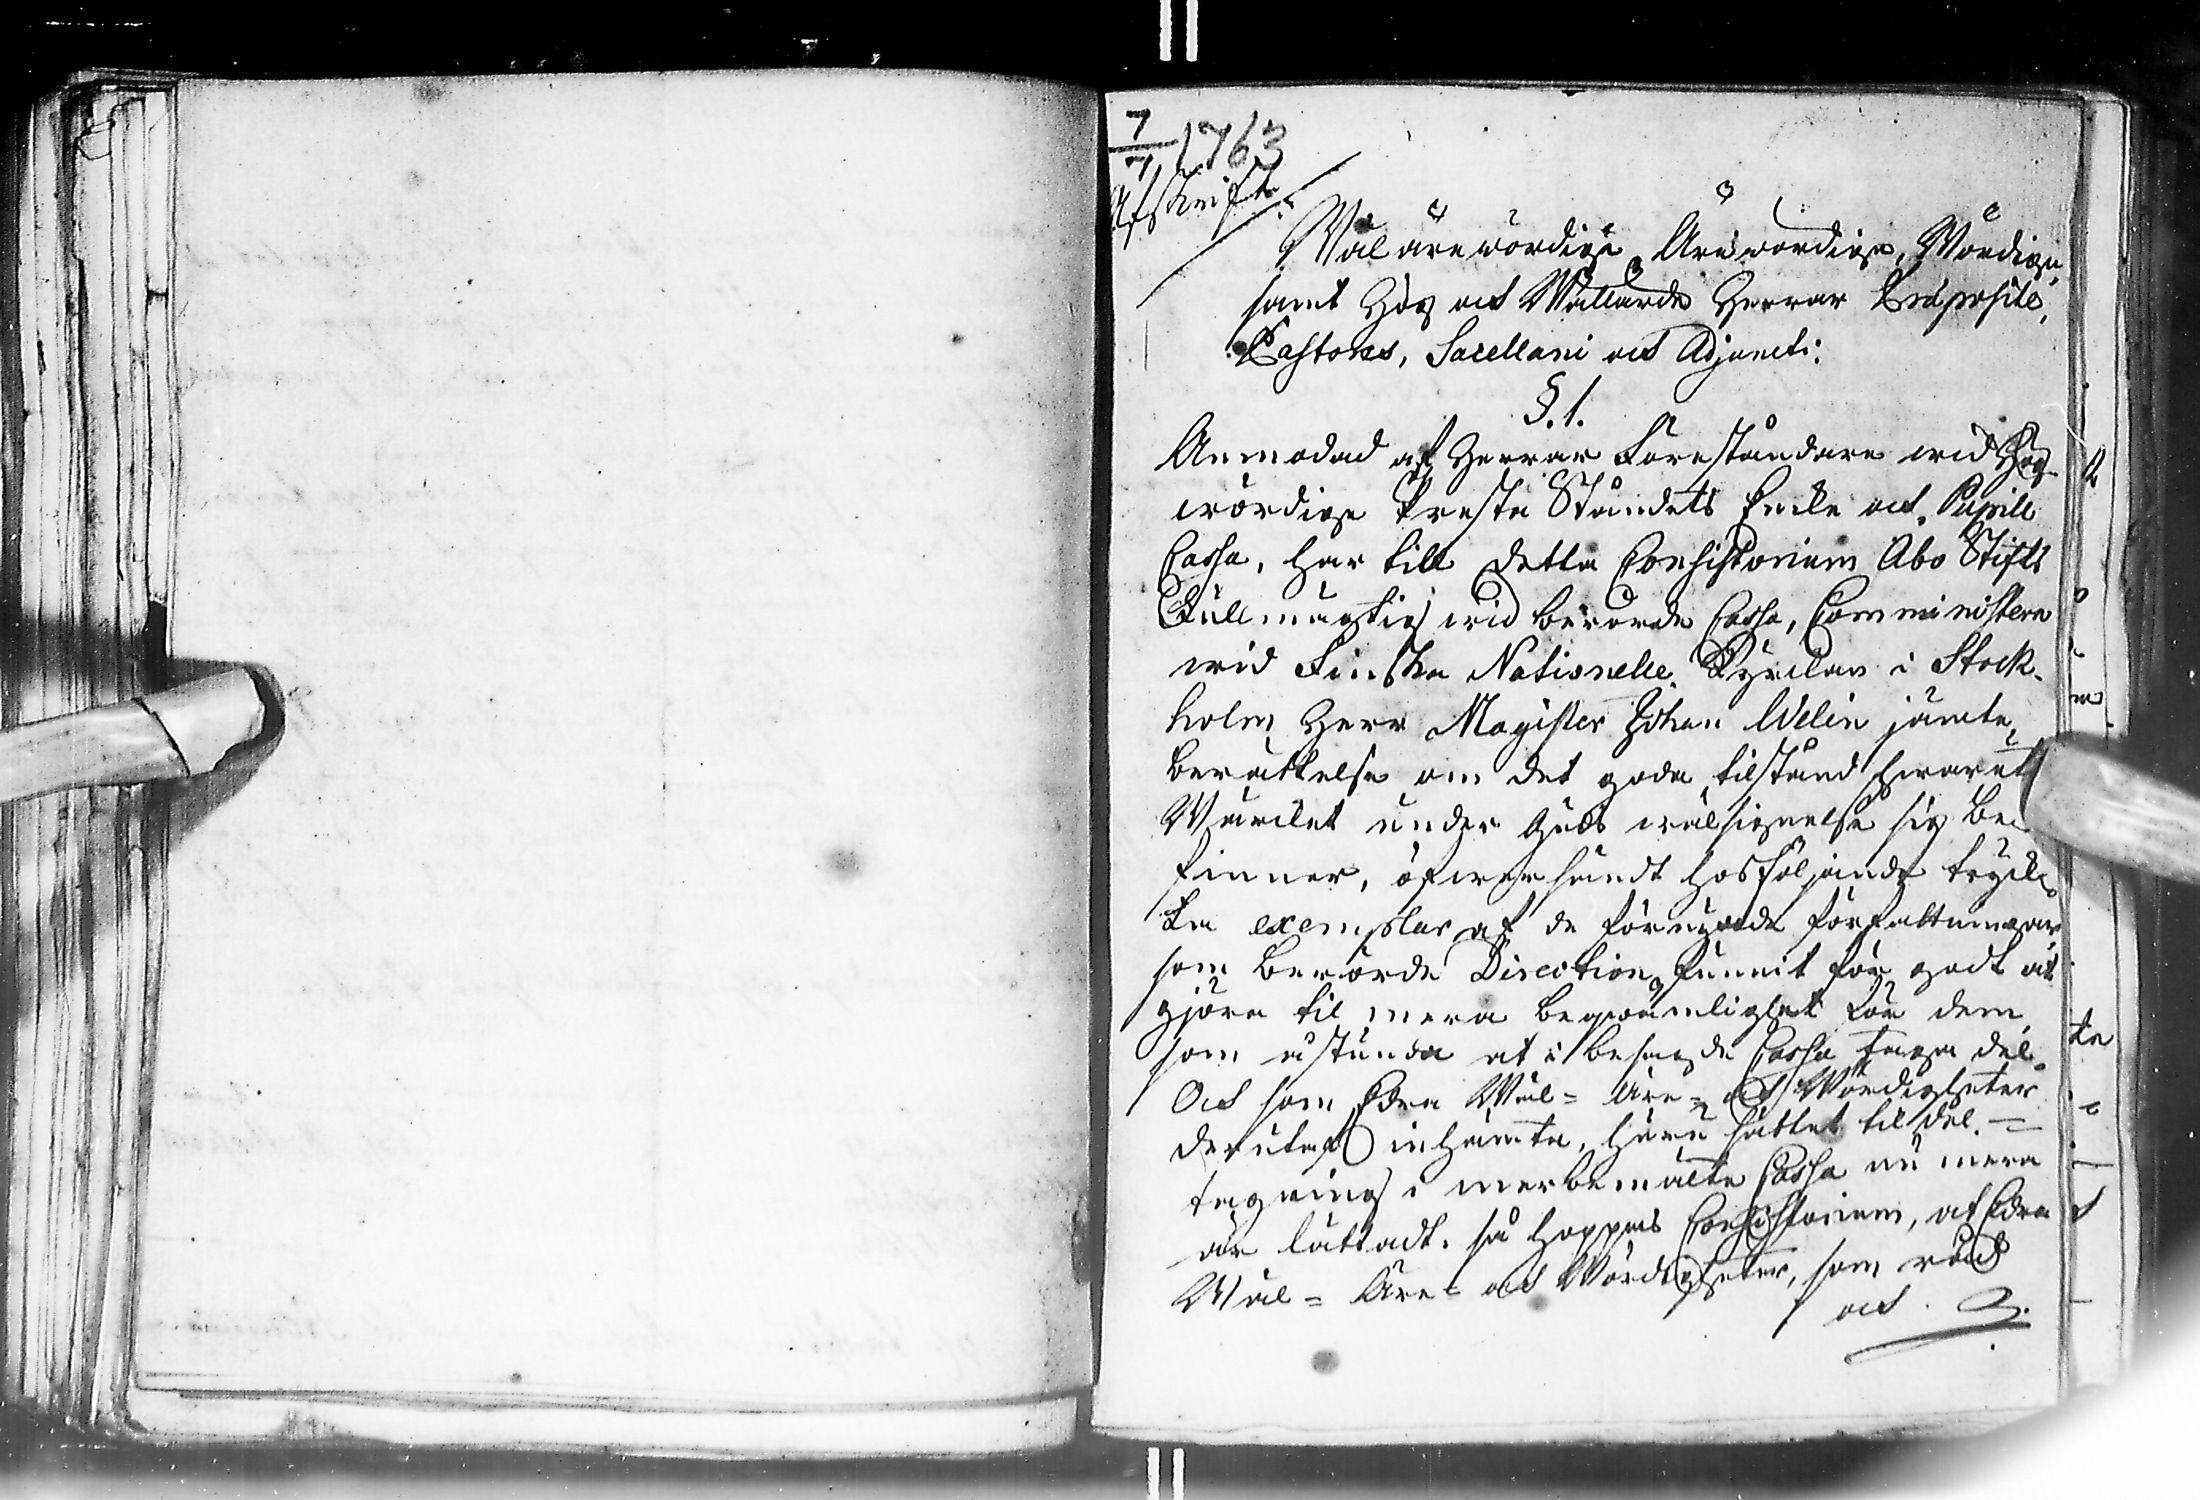 7/7 1763
Afskrift.
Wäl ärewördige Ärewördige, Wördige,
samt Hög ock Wällärde Herrar Præpositi,
Pastores, Sacellani ock Adjuncti.
§. 1.
Anmodad af Herrar Föreståndare wid Hög-
wördige Preste Ståndets Enke ock Pupill
Cassa, har till detta Consistorium Åbo Stifts
Fullmägtig wid berörde Cassa, Comministern
wid Finska Nationelle Kyrckan i Stock-
holm Herr Magister Johan Welin jämte
berättelse om det goda tilstånd hwarut
Wärcket under Guds wälsignelse sig be-
finner, öfwersändt hosföljande tryck-
ta exemplar af de förnyade författningar
som berörde Direction funnit för godt at
gjöra til mera beqwämlighet för dem
som åstunda at i besagde Cassa taga del.
Ock som Edra Wäl- Äre- ock Wördigheter
derutaf inhämta, huru sättet til del-
tagning i merbemälte Cassa nu mera
är lättadt. så hoppas Consistorium, at Edra
Wäl- Äre- ock Wördigheter, som råd
ock